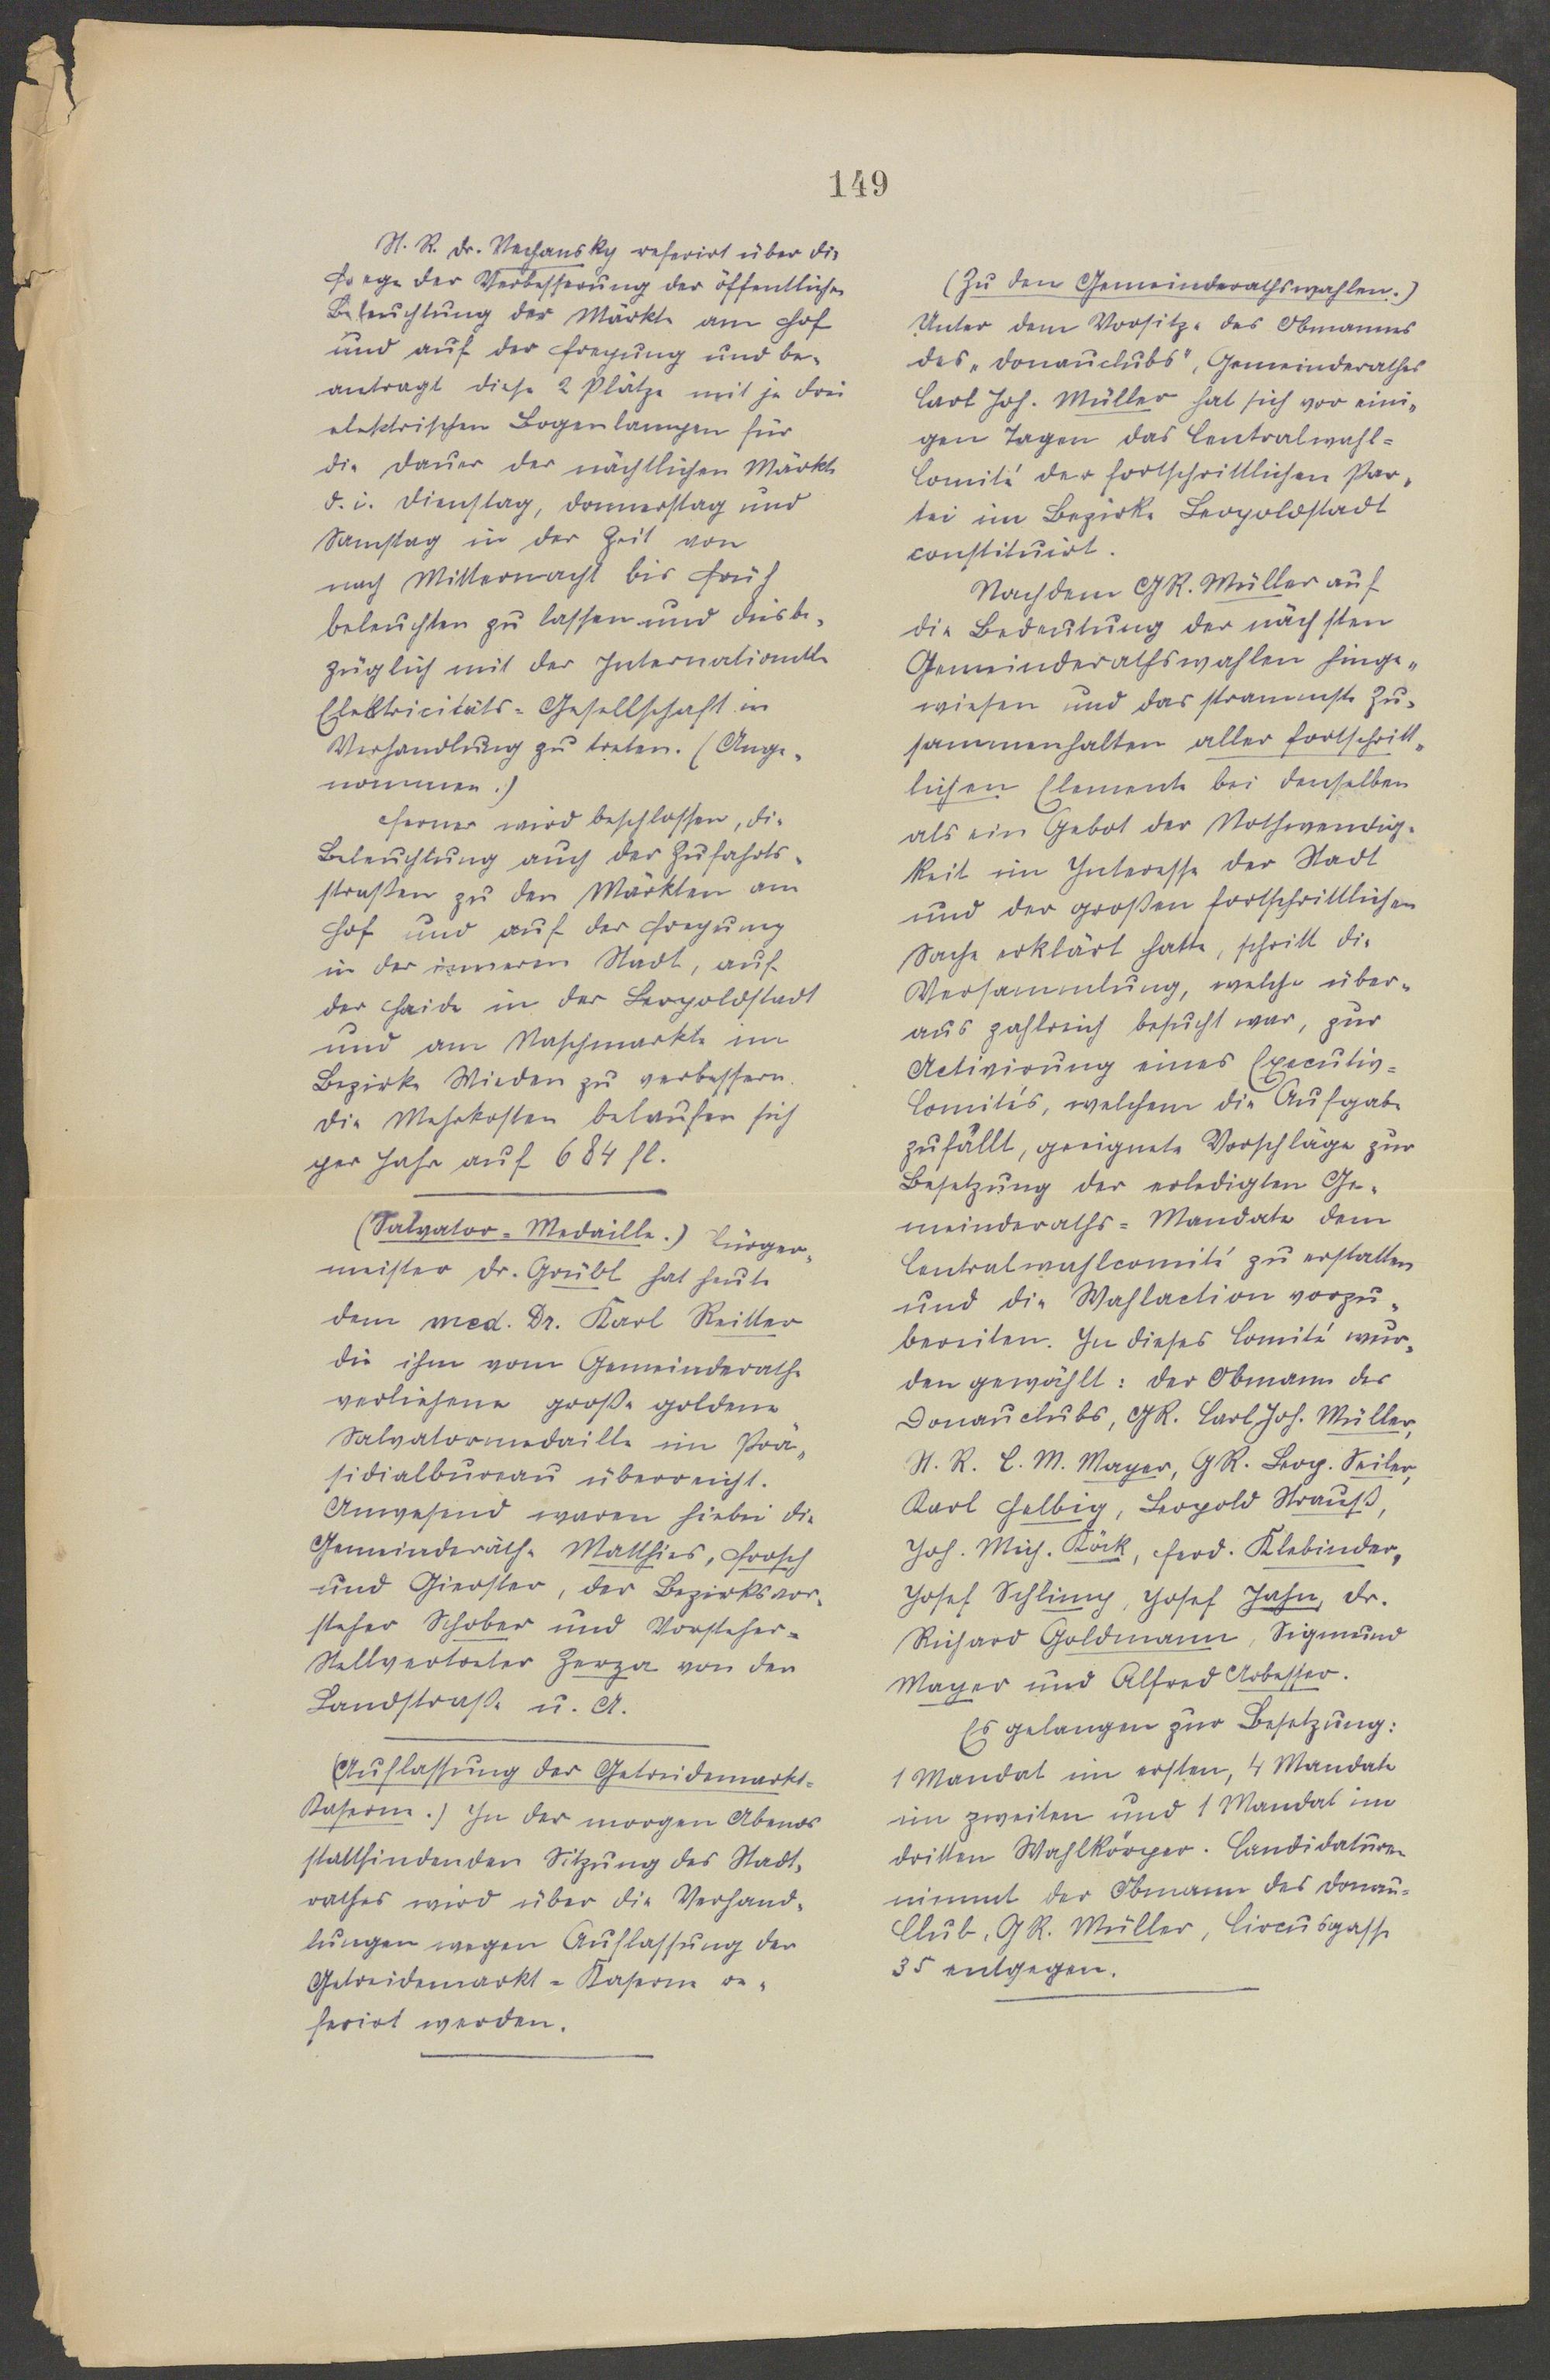 149
St. R. Dr. Nechansky referirt über die
Frage der Verbesserung der öffentlichen
Beleuchtung der Märkte am Hof
und auf der Freyung und be-
antragt diese 2 Plätze mit je drei
elektrischen Bogenlampen für
die Dauer der nächtlichen Märkte
d. i. Dienstag, Donnerstag und
Samstag in der Zeit von
nach Mitternacht bis Früh
beleuchten zu lassen und diesbe-
züglich mit der Internationalen
Elektricitäts-Gesellschaft in
Verhandlung zu treten. (Ange-
nommen.)
Ferner wird beschlossen, die
Beleuchtung auch der Zufahrts-
straßen zu den Märkten am
Hof und auf der Freyung
in der inneren Stadt, auf
der Haide in der Leopoldstadt
und am Naschmarkte im
Bezirke Wieden zu verbessern.
Die Mehrkosten belaufen sich
per Jahr auf 684 fl.
(Salvator-Medaille.) Bürger-
meister Dr. Grübl hat heute
dem med. Dr. Karl Reitter
die ihm vom Gemeinderathe
verliehene große goldene
Salvatormedaille im Prä-
sidialbureau überreicht.
Anwesend waren hiebei die
Gemeinderäthe Matthies, Frosch
und Gierster, der Bezirksvor-
steher Schober und Vorsteher-
Stellvertreter Zerza von der
Landstraße u. A.
(Auflassung der Getreidemarkt-
Kaserne.) In der morgen Abends
stattfindenden Sitzung des Stadt-
rathes wird über die Verhand-
lungen wegen Auflassung der
Getreidemarkt-Kaserne re-
ferirt werden.
(Zu den Gemeinderathswahlen.)
Unter dem Vorsitze des Obmannes
des "Donauclubs", Gemeinderathes
Carl Joh. Müller hat sich vor eini-
gen Tagen das Centralwahl-
Comité der fortschrittlichen Par-
tei im Bezirke Leopoldstadt
constituirt.
Nachdem GR. Müller auf
die Bedeutung der nächsten
Gemeinderathswahlen hinge-
wiesen und das strammste Zu-
sammenhalten aller fortschritt-
lichen Elemente bei denselben
als ein Gebot der Nothwendig-
keit im Interesse der Stadt
und der großen fortschrittlichen
Sache erklärt hatte, schritt die
Versammlung, welche über-
aus zahlreich besucht war, zur
Activirung eines Executiv-
Comités, welchem die Aufgabe
zufällt, geeignete Vorschläge zur
Besetzung der erledigten Ge-
meinderaths-Mandate dem
Centralwahlcomité zu erstatten
und die Wahlaction vorzu-
bereiten. In dieses Comité wur-
den gewählt: der Obmann des
Donauclubs, GR. Carl Joh. Müller,
St. R. C. M. Mayer, GR. Leop. Seiler,
Karl Helbig, Leopold Strauß,
Joh. Mich. Köck, Ferd. Klebinder,
Josef Schlimp, Josef Jahn, Dr.
Richard Goldmann, Sigmund
Mayer und Alfred Arbesser.
Es gelangen zur Besetzung:
1 Mandat im ersten, 4 Mandate
im zweiten und 1 Mandat im
dritten Wahlkörper. Candidaturen
nimmt der Obmann des Donau-
Club, GR. Müller, Circusgasse
35 entgegen.